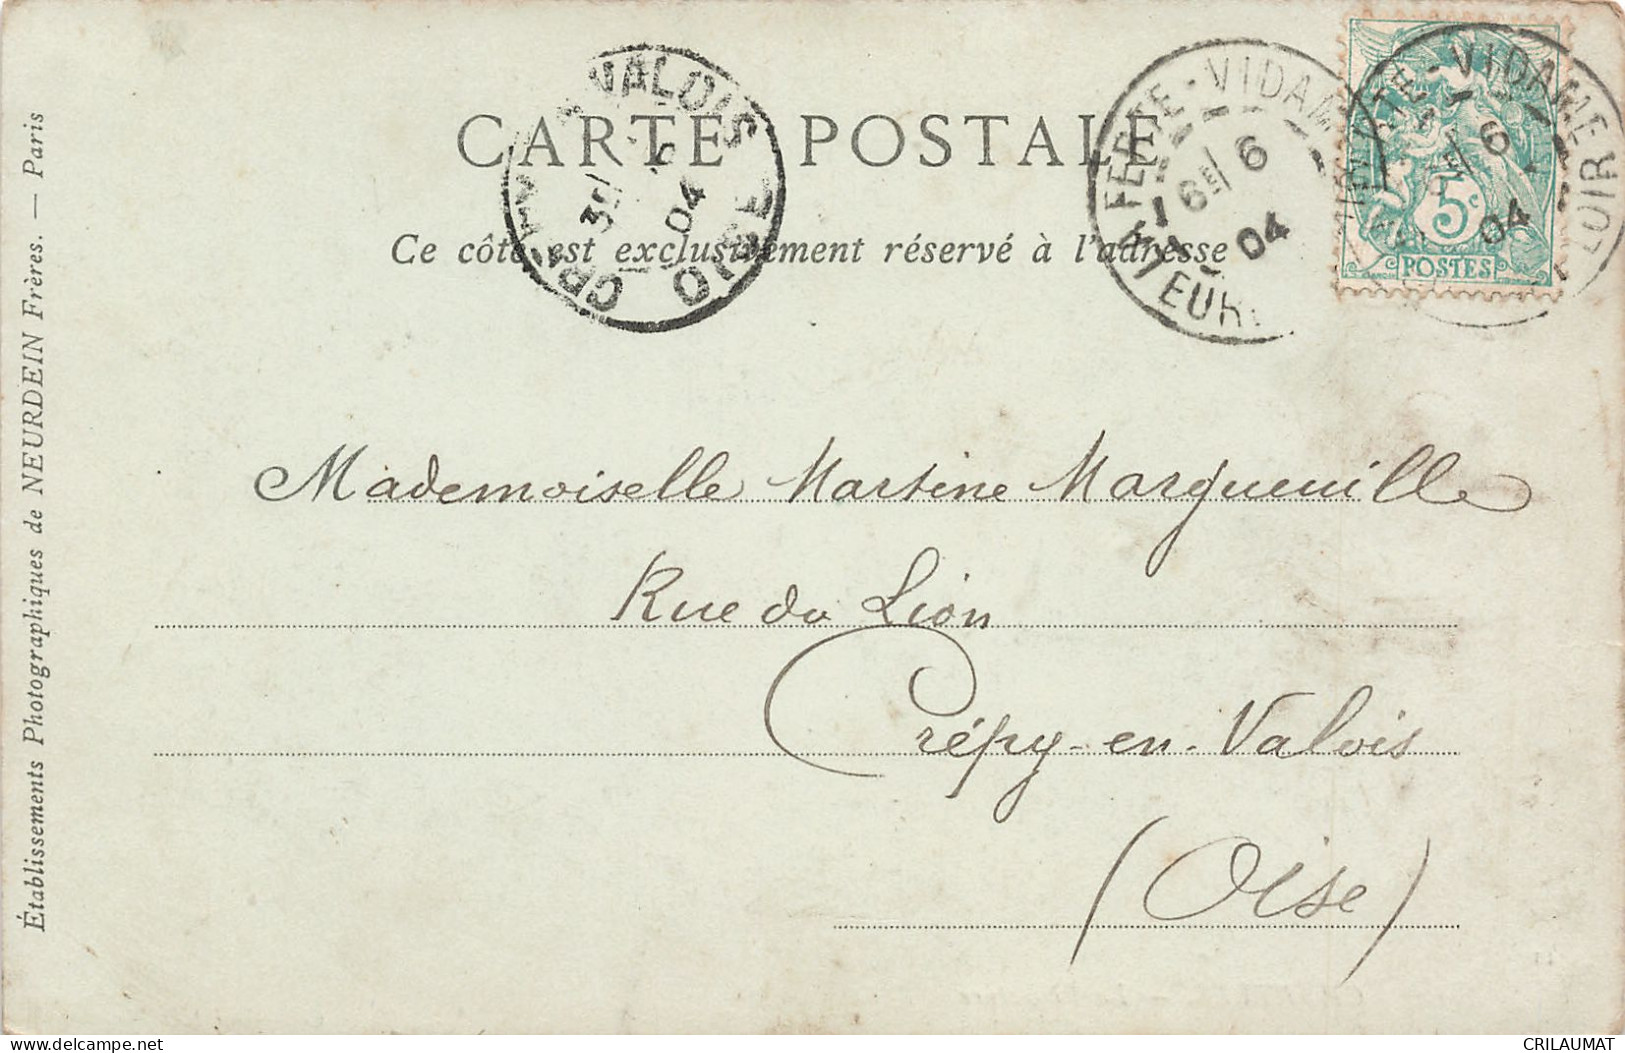 CARTE POSTALE
Ce côté est exclusivement réservé à l'adresse
VALOIS
OISE
04
FERTÉ-VIDAM
6E/ 6
04
EUR
TE-VIDAME
6
04
LOIR
5c
POSTES
Mademoiselle Martine Marguerille
Rue du Lion
Crépy-en-Valois
(Oise)
Établissements Photographiques de NEURDEIN Frères. — Paris
delcampe.net
CRILAUMAT